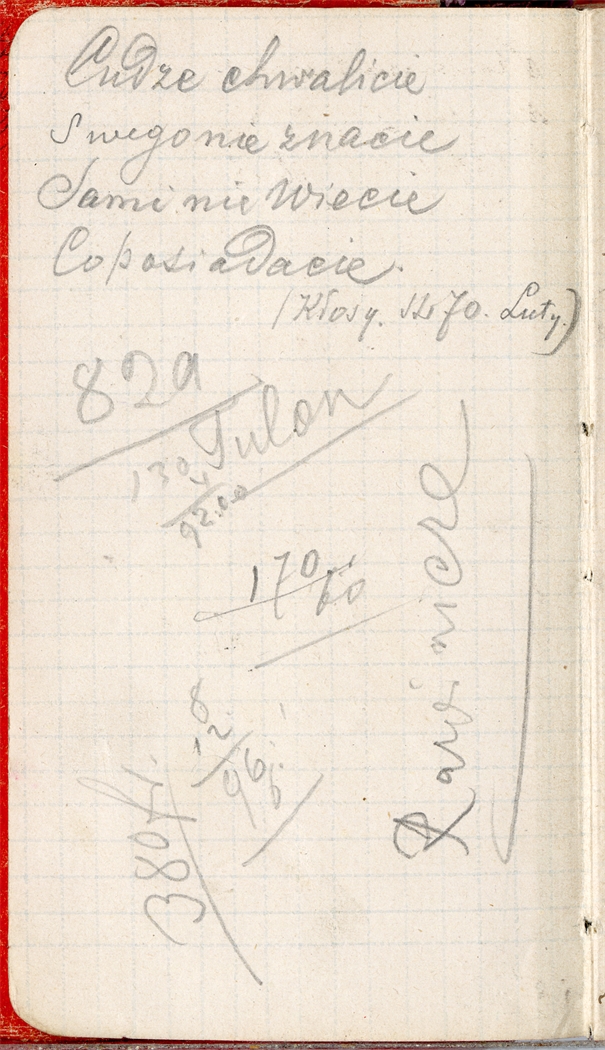 Cudze chwalicie
Swego nie znacie
Sami nie wiecie
Co posiadacie.
(Kłosy. str 70. Luty.)
829
Tulon
130
92.00
170
60
8
12
96
380 fr.